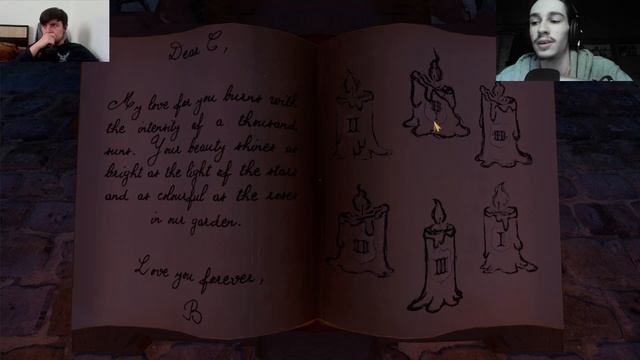 Dear C,
My love for you burns with
the intensity of a thousand
suns. Your beauty shines as
bright as the light of the stars
and as colourful as the roses
in our garden.
Love you forever,
B
II
III
I